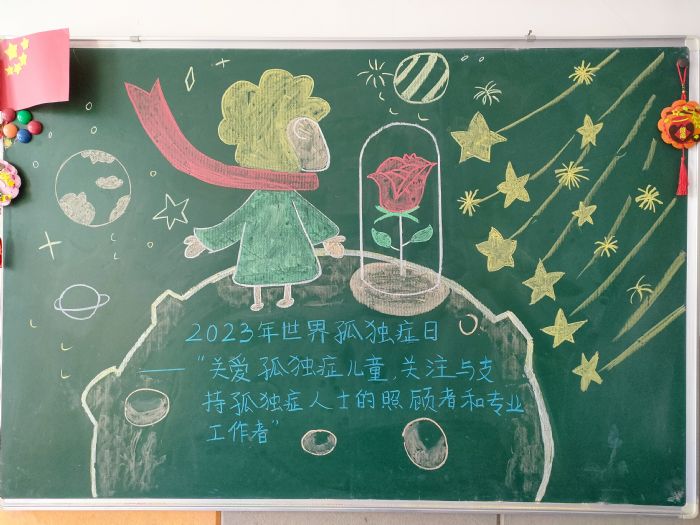 2023年世界孤独症日
——“关爱孤独症儿童,关注与支
持孤独症人士的照顾者和专业
工作者”